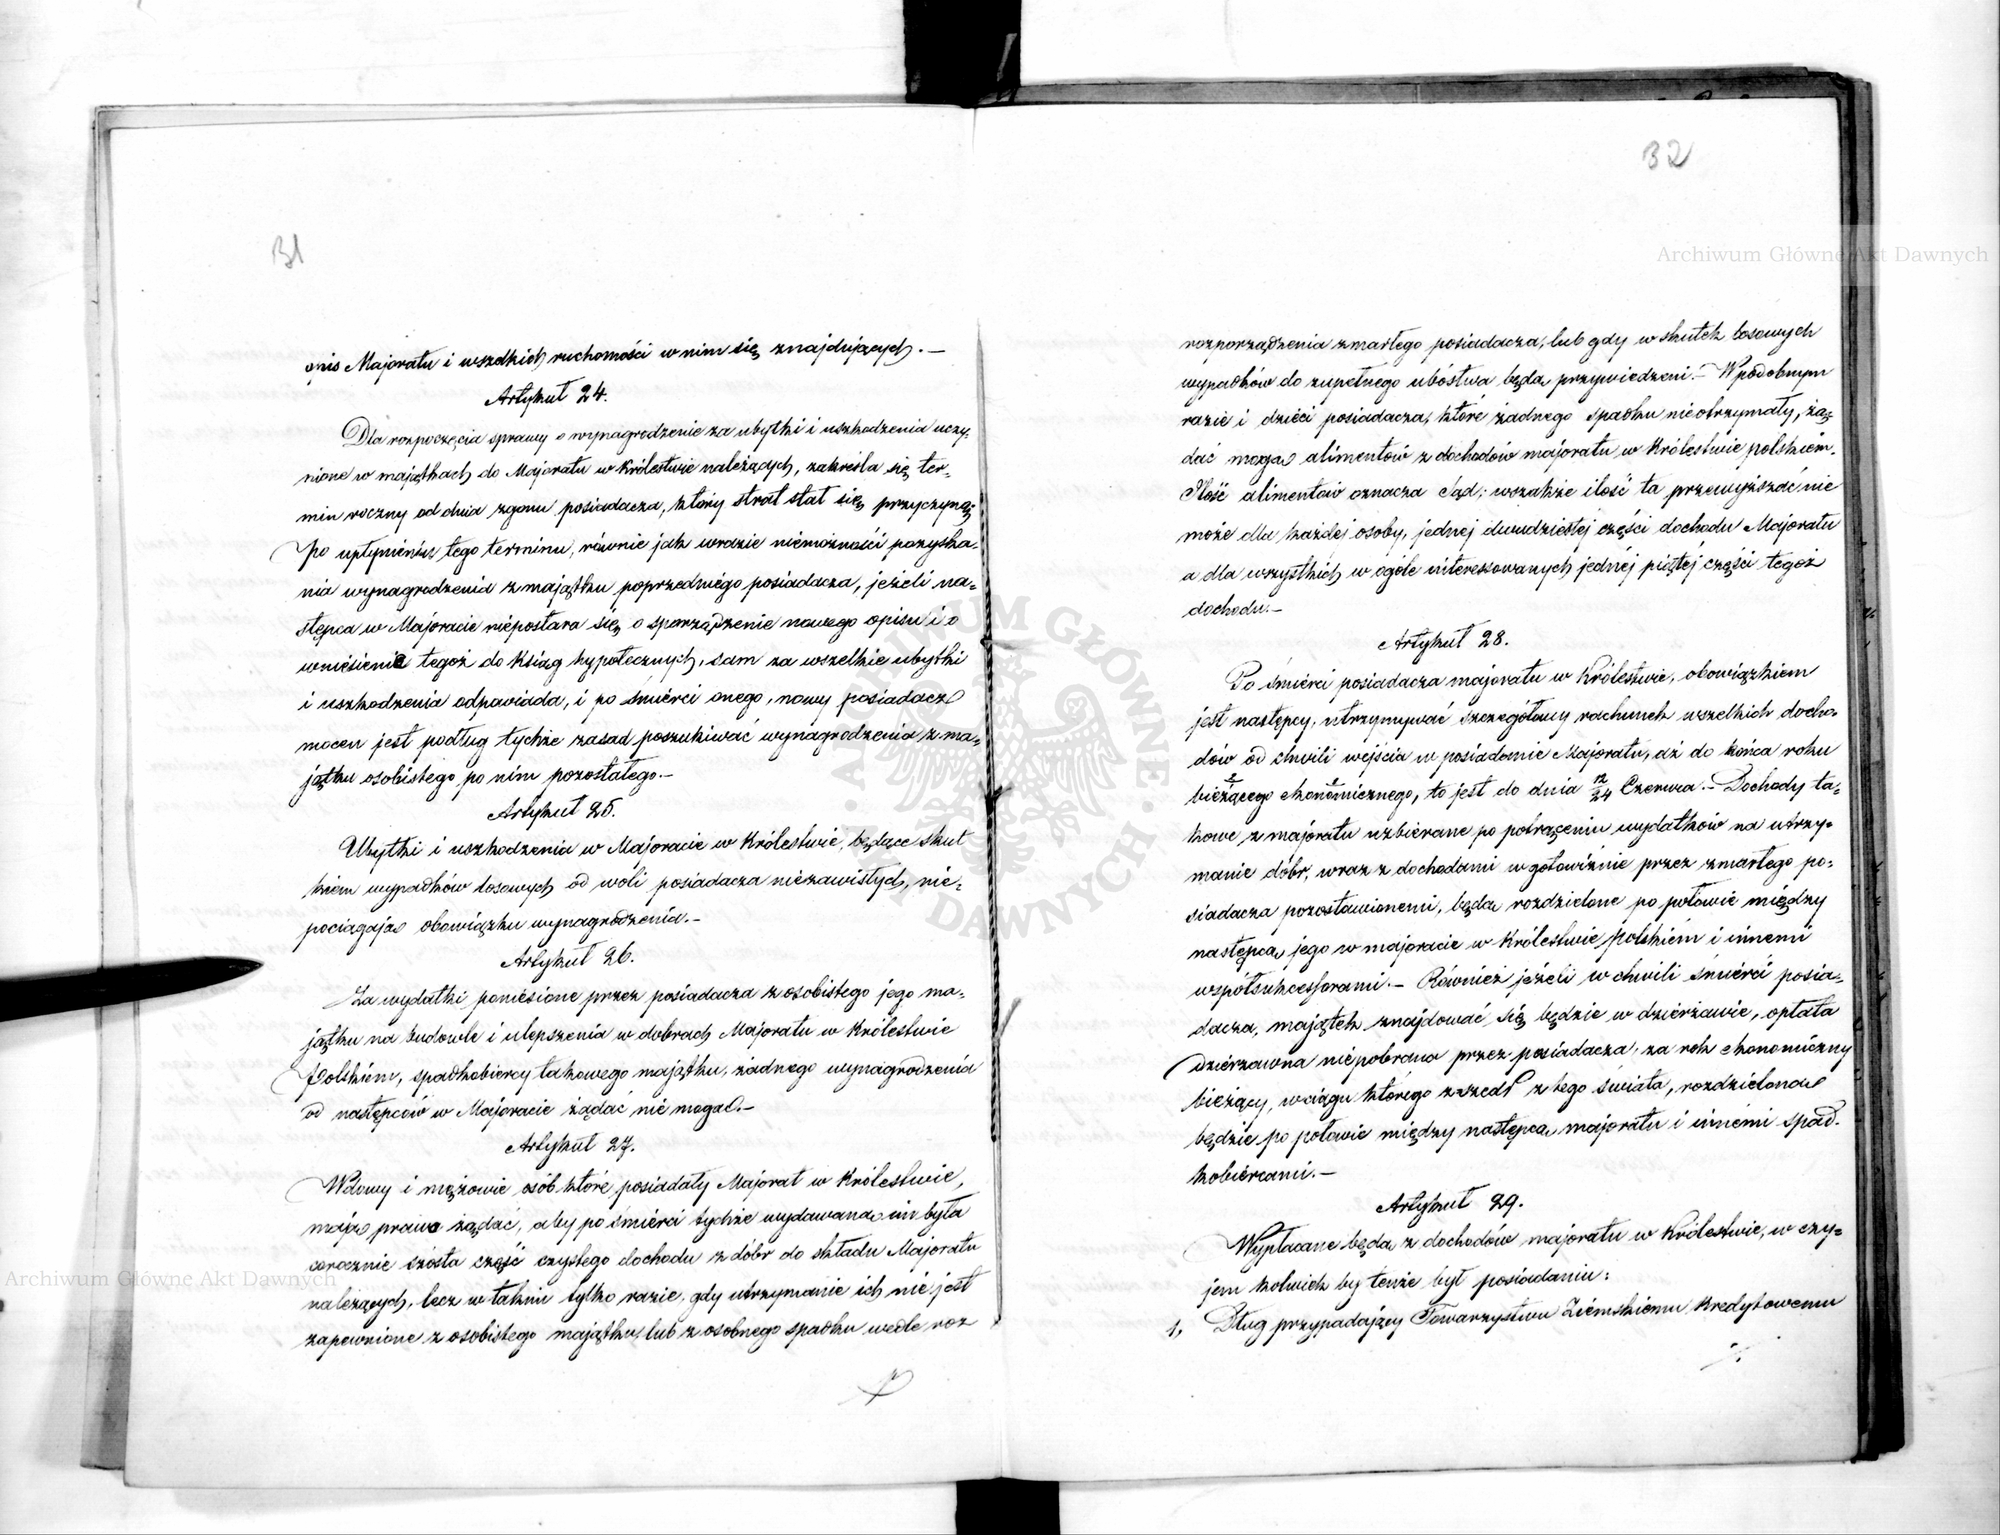 31
opis Majoratu i wszelkich ruchomości w nim się znajdujących. —
Artykuł 24.
Dla rozpoczęcia sprawy o wynagrodzenie za ubytki i uszkodzenia uczy-
nione w majątkach do Majoratu w Królestwie należących, zakreśla się ter-
min roczny od dnia zgonu posiadacza, który strat stał się przyczyną;
Po upłynieniu tego terminu, równie jak w razie niemożności pozyska-
nia wynagrodzenia z majątku poprzedniego posiadacza, jeżeli na-
stępca w Majoracie niepostara się o sporządzenie nowego opisu i o
wniesienie tegoż do Ksiąg hypotecznych, sam za wszelkie ubytki
i uszkodzenia odpowiada, i po śmierci onego, nowy posiadacz
mocen jest podług tychże zasad poszukiwać wynagrodzenia z ma-
jątku osobistego po nim pozostałego.—
Artykuł 25.
Ubytki i uszkodzenia w Majoracie w Królestwie, będące skut
kiem wypadków losowych od woli posiadacza niezawisłych, nie-
pociągają obowiązku wynagrodzenia.—
Artykuł 26.
Za wydatki poniesione przez posiadacza z osobistego jego ma-
jątku na budowle i ulepszenia w dobrach Majoratu w Królestwie
Polskiem, spadkobiercy takowego majątku, żadnego wynagrodzenia
od następców w Majoracie żądać nie mogą.—
Artykuł 27.
Wdowy i mężowie osób które posiadały Majorat w Królestwie,
mają prawo żądać, aby po śmierci tychże wydawaną im była
corocznie szósta część czystego dochodu z dóbr do składu Majoratu
należących, lecz w takim tylko razie, gdy utrzymanie ich nie jest
zapewnione z osobistego majątku, lub z osobnego spadku wedle roz
32
rozporządzenia zmarłego posiadacza, lub gdy w skutek losowych
wypadków do zupełnego ubóstwa będą przywiedzeni.— W podobnym
razie i dzieci posiadacza, które żadnego spadku nieotrzymały, żą-
dać mogą alimentów z dochodów majoratu w Królestwie polskiém.
Ilość alimentów oznacza Sąd; wszakże ilość ta przewyższać nie
może dla każdej osoby, jednej dwudziestej części dochodu Majoratu
a dla wszystkich w ogóle interesowanych jednéj piątej części tegoż
dochodu.—
Artykuł 28.
Po śmierci posiadacza majoratu w Królestwie, obowiązkiem
jest następcy, utrzymywać szczegółowy rachunek wszelkich docho-
dów od chwili wejścia w posiadanie Majoratu, aż do końca roku
bieżącego ekonomicznego, to jest do dnia 12/24 Czerwca.— Dochody ta-
kowe z majoratu uzbierane po potrąceniu wydatków na utrzy-
manie dóbr, wraz z dochodami w gotowiźnie przez zmarłego po-
siadacza pozostawionemi, będą rozdzielone po połowie między
następcą jego w majoracie w Królestwie polskiém i innemi
współsukcessorami.— Również jeżeli w chwili śmierci posia-
dacza, majątek znajdować się będzie w dzierżawie, opłata
dzierżawna niepobrana przez posiadacza, za rok ekonomiczny
bieżący, w ciągu którego zszedł z tego świata, rozdzieloną
będzie po połowie między następcą majoratu i innemi spad-
kobiercami.—
Artykuł 29.
Wypłacane będą z dochodów majoratu w Królestwie, w czy-
jem kolwiek by tenże był posiadaniu:
1, Dług przypadający Towarzystwu Ziemskiemu Kredytowemu
Archiwum Główne Akt Dawnych
Archiwum Główne Akt Dawnych
ARCHIWUM GŁÓWNE AKT DAWNYCH